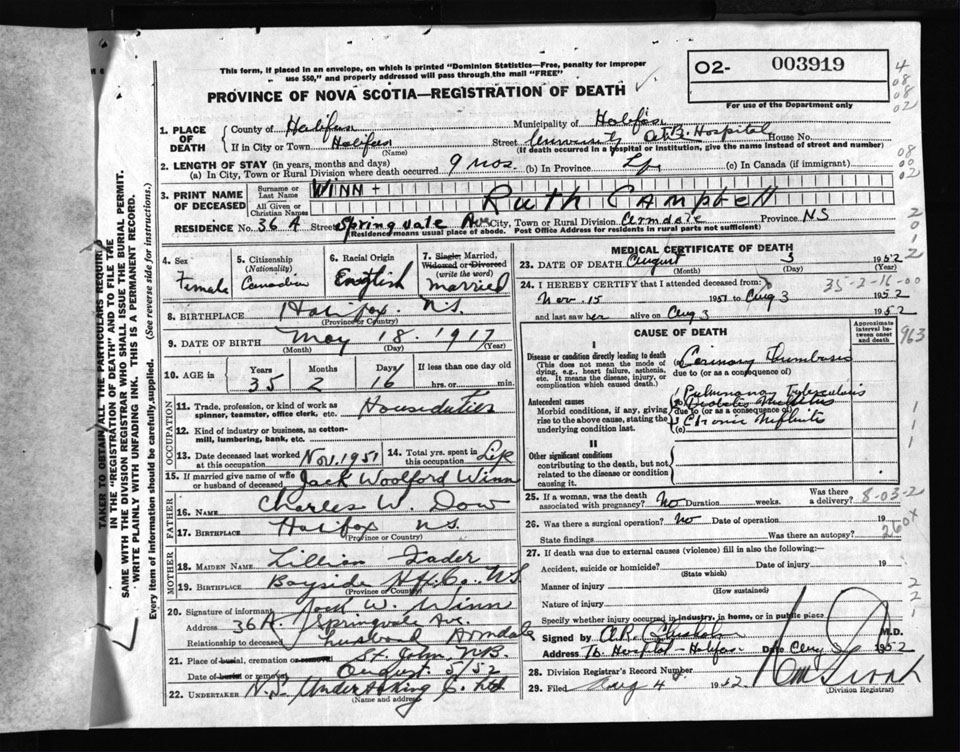 This form, if placed in an envelope, on which is printed "Dominion Statistics—Free, penalty for improper
use $50," and properly addressed will pass through the mail "FREE"
PROVINCE OF NOVA SCOTIA—REGISTRATION OF DEATH
O2- 003919
For use of the Department only
4
08
08
02
1. PLACE OF DEATH
County of Halifax Municipality of Halifax
If in City or Town Halifax Street Hospital House No.
(Name) (If death occurred in a hospital or institution, give the name instead of street and number)
2. LENGTH OF STAY (in years, months and days)
(a) In City, Town or Rural Division where death occurred 9 mos. (b) In Province (c) In Canada (if immigrant)
08
00
02
3. PRINT NAME OF DECEASED
Surname or Last Name WINN
All Given or Christian Names Ruth Campbell
RESIDENCE No. 36 A Street Springvale Ave City, Town or Rural Division Armdale Province NS
(Residence means usual place of abode. Post Office Address for residents in rural parts not sufficient)
2
0
1
2
4. Sex Female
5. Citizenship (Nationality) Canadian
6. Racial Origin English
7. Single, Married, Widowed or Divorced (write the word) married
8. BIRTHPLACE Halifax N.S.
(Province or Country)
9. DATE OF BIRTH May 18 1917
(Month) (Day) (Year)
10. AGE in Years Months Days If less than one day old
35 2 16 hrs. or min.
OCCUPATION
11. Trade, profession, or kind of work as spinner, teamster, office clerk, etc. Houseduties
12. Kind of industry or business, as cotton-mill, lumbering, bank, etc.
13. Date deceased last worked at this occupation Nov. 1951 14. Total yrs. spent in this occupation Life
15. If married give name of wife or husband of deceased Jack Woolford Winn
FATHER
16. NAME Charles W. Dow
17. BIRTHPLACE Halifax N.S.
(Province or Country)
MOTHER
18. MAIDEN NAME Lillian Fader
19. BIRTHPLACE Bayside Hfx. Co. NS
(Province or Country)
20. Signature of informant Jack W. Winn
Address 36 A. Springvale Ave. Armdale
Relationship to deceased husband
21. Place of burial, cremation or removal St. John NB.
Date of burial or removal August 5/52
22. UNDERTAKER N.S. Undertaking C. Ltd.
(Name and address)
MEDICAL CERTIFICATE OF DEATH
23. DATE OF DEATH August 3 1952
(Month) (Day) (Year)
24. I HEREBY CERTIFY that I attended deceased from: 35-2-16-00
Nov. 15 1951 to Aug 3 1952
and last saw her alive on Aug 3 1952
CAUSE OF DEATH
Approximate interval between onset and death
963
I
Disease or condition directly leading to death
(This does not mean the mode of dying, e.g., heart failure, asthenia, etc. It means the disease, injury, or complication which caused death.)
(a)
due to (or as a consequence of)
Antecedent causes
Morbid conditions, if any, giving rise to the above cause, stating the underlying condition last.
Pulmonary Tuberculosis
(b) Diabetes Mellitus
due to (or as a consequence of)
(c) Chronic
1
1
1
II
Other significant conditions
contributing to the death, but not related to the disease or condition causing it.
25. If a woman, was the death associated with pregnancy? No Duration weeks. Was there a delivery? 8-03-2
26. Was there a surgical operation? No Date of operation 19
State findings Was there an autopsy? 260X
27. If death was due to external causes (violence) fill in also the following:—
Accident, suicide or homicide? Date of injury 19
(State which)
Manner of injury
(How sustained)
Nature of injury
Specify whether injury occurred in industry, in home, or in public place
2
2
1
Signed by A.R. Chisholm M.D.
Address Tb. Hospital - Halifax Date Aug 1952
28. Division Registrar's Record Number
29. Filed Aug 4 1952
(Division Registrar)
TAKEN TO OBTAIN ALL THE PARTICULARS REQUIRED
IN THE "REGISTRATION OF DEATH" AND TO FILE THE
SAME WITH THE DIVISION REGISTRAR WHO SHALL ISSUE THE BURIAL PERMIT.
WRITE PLAINLY WITH UNFADING INK. THIS IS A PERMANENT RECORD.
Every item of information should be carefully supplied. (See reverse side for instructions.)